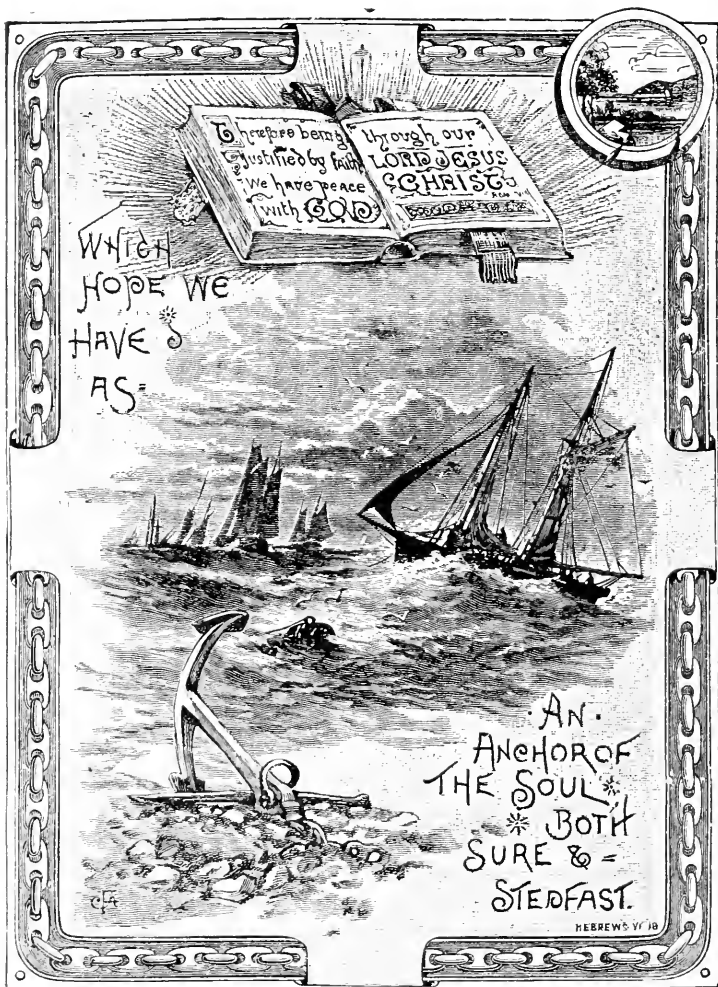 Therefore being
justified by faith
we have peace
with GOD
through our
LORD JESUS
CHRIST
WHICH
HOPE WE
HAVE
AS=
·AN·
ANCHOR OF
THE SOUL
BOTH
SURE & =
STEDFAST.
HEBREWS VI
CFA